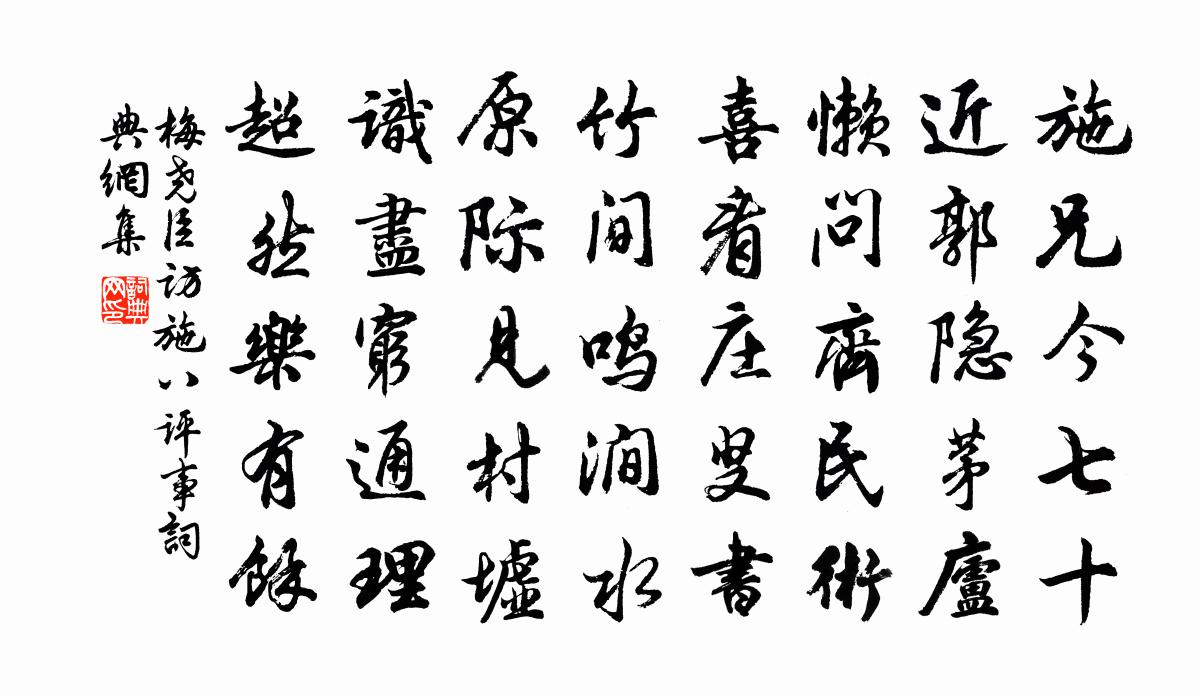 施兄今七十
近郭隐茅廬
懒問齊民術
喜看庄叟書
竹间鸣澗水
原际見村墟
識盡窮通理
超然樂有餘
梅尧臣访施八评事詞
典網集
詞典网印